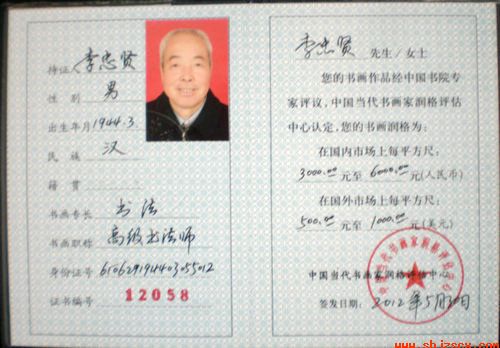 持证人 李忠贤
性 别 男
出生年月 1944.3.
民 族 汉
籍 贯
书画专长 书法
书画职称 高级书法师
身份证号 610629194403055012
证书编号 12058
李忠贤 先生/女士
您的书画作品经中国书院专
家评议,中国当代书画家润格评估
中心认定,您的书画润格为:
在国内市场上每平方尺:
3000.00 元至 6000.00 元(人民币)
在国外市场上每平方尺:
500.00 元至 1000.00 元(美元)
中国当代书画家润格评估中心
签发日期: 2012年5月30日